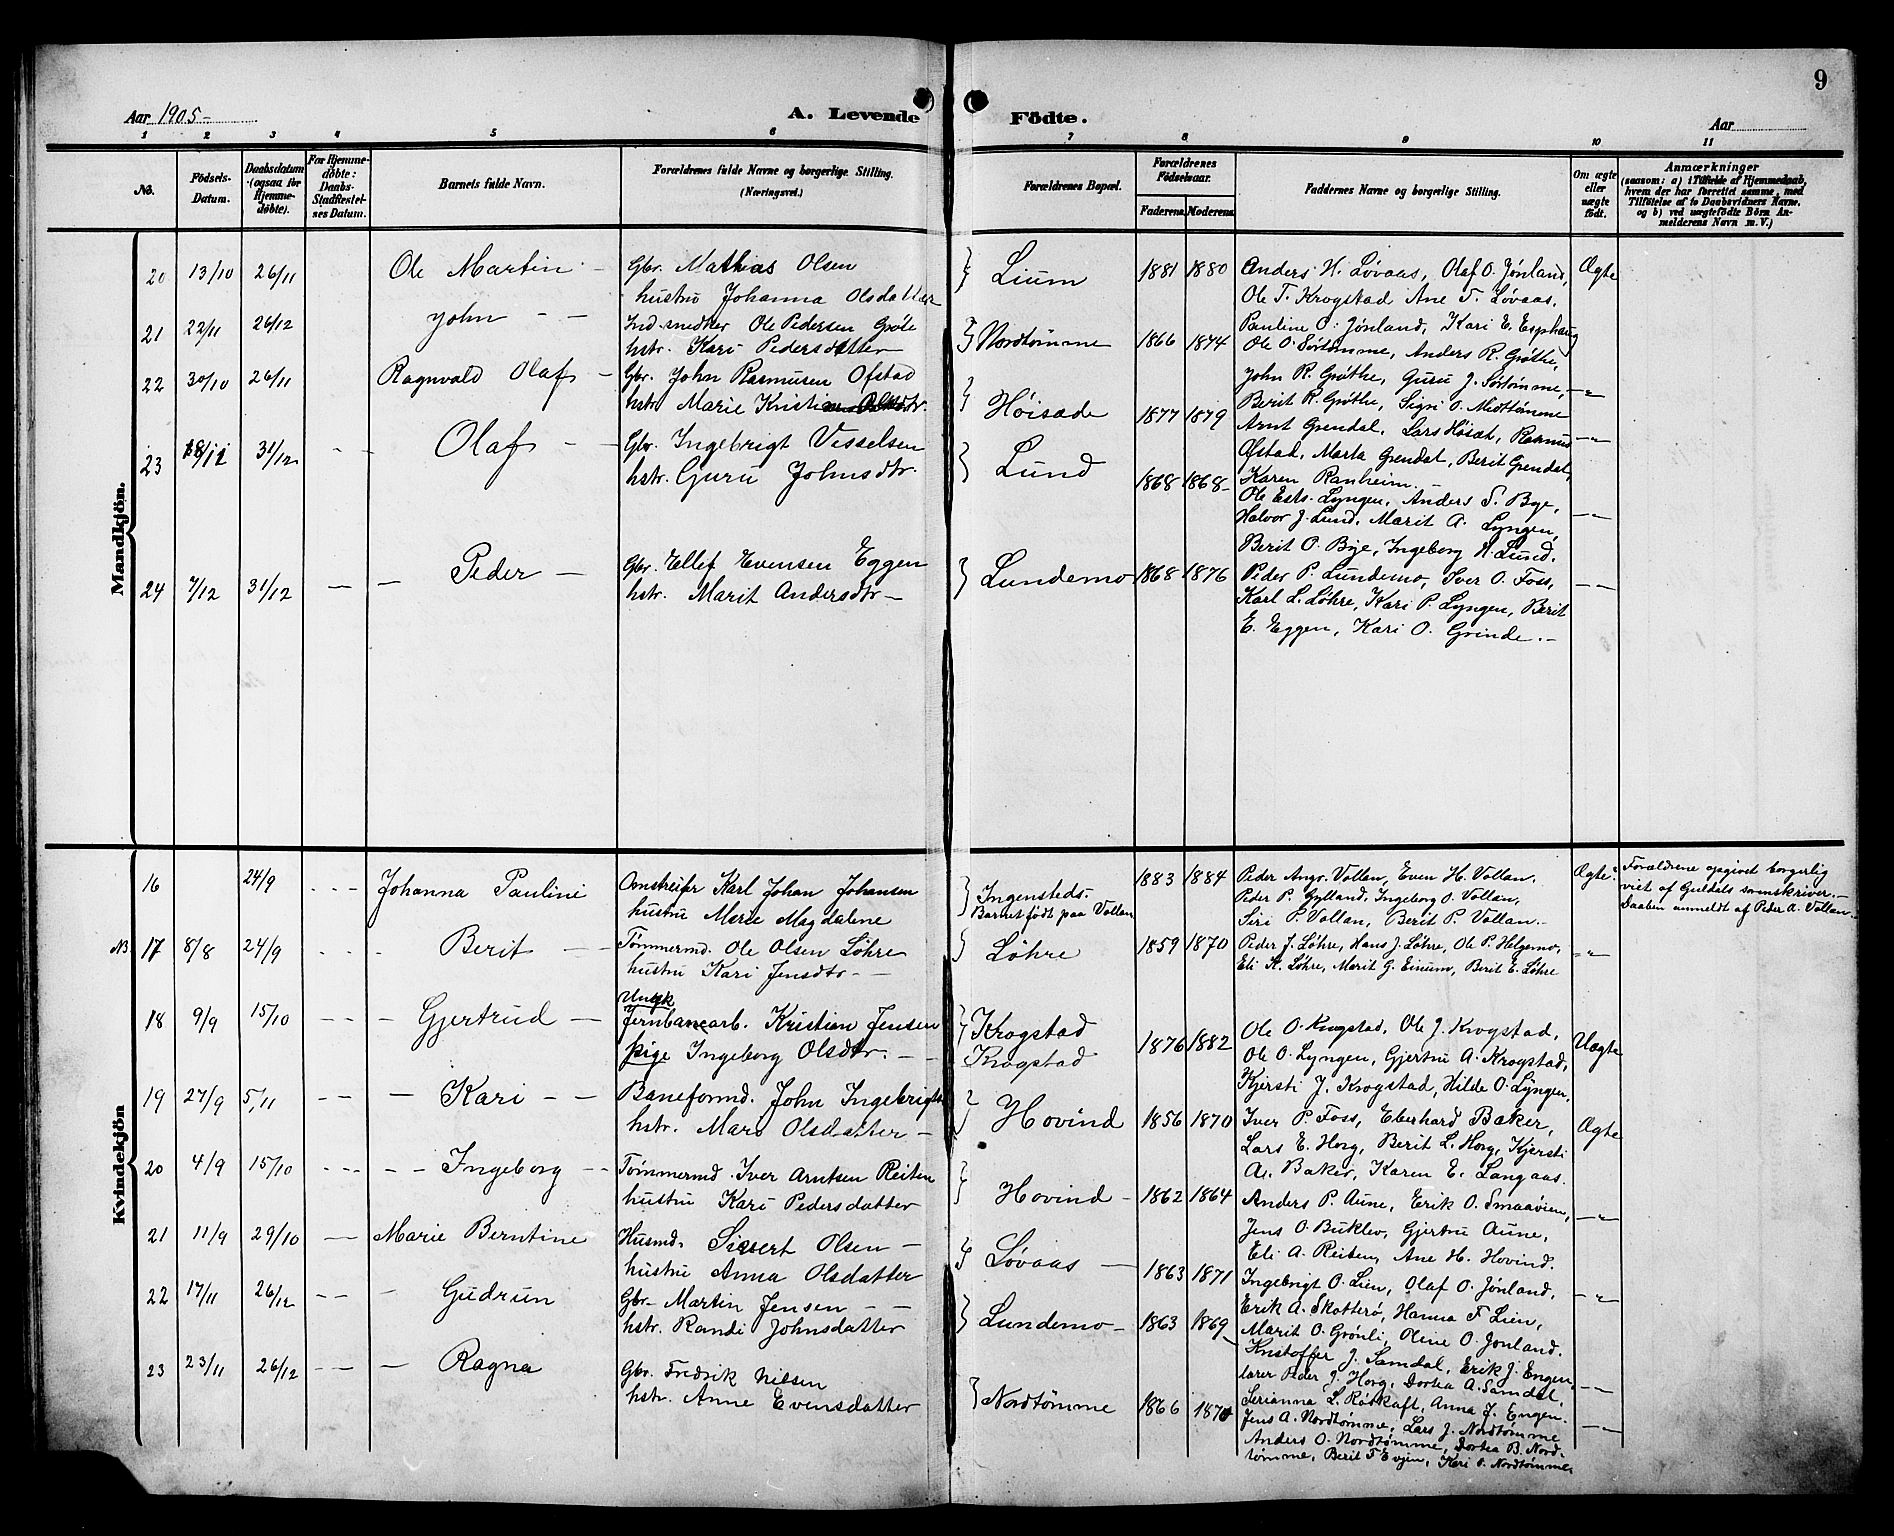 9
Aar 1905-
A. Levende Födte.
Aar
1 2 3 4 5 6 7 8 9 10 11
No.
Födsels-Datum.
Daabsdatum (ogsaa for Hjemmedöbte).
For Hjemmedöbte: Daabs-Stadfæstelses Datum.
Barnets fulde Navn.
Forældrenes fulde Navne og borgerlige Stilling. (Næringsvei.)
Forældrenes Bopæl.
Forældrenes Födselsaar.
Faderens. Moderens.
Faddernes Navne og borgerlige Stilling.
Om ægte eller uægte födt.
Anmærkninger
(saasom: a) i Tilfælde af Hjemmedaab,
hvem der har forrettet samme, med
Tilföielse af to Daabsvidners Navne,
og b) ved uægtefödte Börn Anmelderens Navn m. V.)
Mandkjön.
20 13/10 26/11 Ole Martin - Gbr. Mathias Olsen
hustru Johanna Olsdatter
Lium 1881 1880 Anders H. Løvaas, Olaf O. Jønland, Ægte
Ole T. Krogstad Ane T. Løvaas.
Pauline O. Jønland, Kari E. Esphaug
21 22/11 26/12 John - - Ind. snedker Ole Pedersen Grøte
hstr. Kari Pedersdatter
Nordtømme 1866 1874 Ole O. Sørtømme, Anders R. Grøthe,
John R. Grøthe, Guru J. Sørtømme, -"-
Berit R. Grøthe, Sigri O. Midttømme
22 30/10 26/11 Ragnvald Olaf - Gbr. John Rasmusen Ofstad
hstr. Marie
Höisæde 1877 1879 Arnt Grendal, Lars Høsæt, Rasmus -"-
Østad, Marta Grendal, Berit Grendal,
Karen Ranheim. -
23 18/11 31/12 Olaf - - Gbr. Ingebrigt Vesselsen
hstr. Guru Johnsdtr.
Lund 1868 1868- Ole Ests. Lyngen, Anders S. Bye, -"-
Halvor J. Lund, Marit A. Lyngen,
Berit O. Bye, Ingeborg H. Lund.
24 7/12 31/12 - - Peder - Gbr. Ellef Evensen Eggen
hstr. Marit Andersdtr -
Lundemo 1868 1876 Peder P. Lundemo, Iver O. Foss, -"-
Karl L. Løhre, Kari P. Lyngen, Berit
E. Eggen, Kari O. Grinde. -
Kvindekjön
16 24/9 - - - Johanna Pauline Omstreifer Karl Johan Johansen
hustru Marie Magdalene
Ingensteds.
Barnet født paa Vollan
1883 1884 Peder Angr. Vollan, Even H. Vollan. Ægte.
Peder P. Gylland, Ingeborg O. Vollan,
Siri P. Vollan, Berit P. Vollan. -
Forældrene opgivet borgerlig
viet af Guldals sorenskriver. -
Daaben anmeldt af Peder A. Vollan. -
NB 17 8/8 24/9 - - - Berit - - Tømmermd. Ole Olsen Løhre
hustru Kari Jensdtr - -
Löhre 1859 1870 Peder J. Løhre, Hans J. Løhre, Ole P. Helgemo, -"-
Eli K. Løhre, Marit G. Einum, Berit E. Løhre
18 9/9 15/10 - - - Gjertrud - Ungk
Jernbanearb. Kristian Jensen
pige Ingeborg Olsdtr. - -
Krogstad
Krogstad
1876 1882 Ole O. Krogstad, Ole J. Krogstad, Uægte
Ole O. Lyngen, Gjertru A. Krogstad,
Kjersti J. Krogstad, Hilde O. Lyngen,
19 27/9 5/11 - - - Kari - - Baneformd. John Ingebrigts
hstr. Mari Olsdatter -
Hovind 1856 1870 Iver P. Foss, Eberhard Baker, Ægte
Lars E. Horg, Berit L. Horg, Kjersti
A. Baker, Karen E. Langaas.
20 4/9 15/10 - - - - - Ingeborg - - Tømmermd. Iver Arntsen Reiten
hustru Kari Pedersdatter
Hovind - 1862 1864 Anders P. Aune, Erik O. Smaavien, -"-
Jens O. Buklev, Gjertru Aune,
Eli A. Reiten, Ane H. Hovind.
21 11/9 29/10 - Marie Berntine Husmd. Sivert Olsen -
hustru Anna Olsdatter
Løvaas - 1863 1871 Ingebrigt O. Lien, Olaf O. Jønland, -"-
Erik A. Skotterø, Hanna F. Lien,
Marit O. Grønli, Oline O. Jonland.
22 17/11 26/12 - - - Gudrun Gbr- Martin Jensen - -
hstr. Randi Johnsdatter
Lundemo - 1863 1869 Kristoffer J. Samdal, Erik J. Engen, -"-
lærer Peder J. Horg, Dortea A. Samdal,
Serianna L. Rødkaft, Anna J. Engen.
23 23/11 26/12 - - - Ragna Gbr. Fredrik Nilsen
hstr. Anne Evensdatter
Nordtømme 1866 1870 Jens A. Nordtømme, Lars J. Nordtømme -"-
Anders O. Nordtømme, Dortea B. Nord-
tømme, Berit T Evjen, Kari O. Nordtømme.